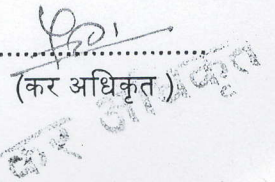 (कर अधिकृत )
कर अधिकृत